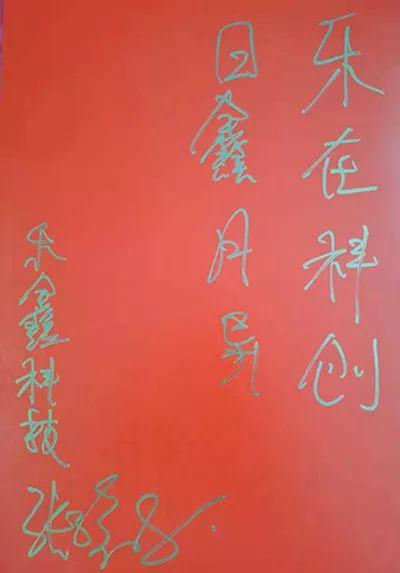 乐在科创
日鑫月异
乐鑫科技